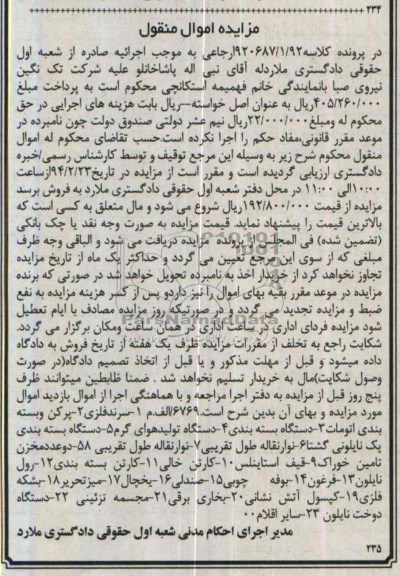 ۲۳۴
مزایده اموال منقول
در پرونده کلاسه۹۲۰۶۸۷/۱/۹۲ارجاعی به موجب اجرائیه صادره از شعبه اول
حقوقی دادگستری ملاردله آقای نبی اله پاشاخانلو علیه شرکت تک نگین
نیروی صبا بانمایندگی خانم فهمیمه استکانچی محکوم است به پرداخت مبلغ
۴۰۵/۲۶۰/۰۰۰ریال به عنوان اصل خواسته-ریال بابت هزینه های اجرایی در حق
محکوم له ومبلغ۲۲/۰۰۰/۰۰۰ریال نیم عشر دولتی صندوق دولت چون نامبرده در
موعد مقرر قانونی،مفاد حکم را اجرا نکرده است.حسب تقاضای محکوم له اموال
منقول محکوم شرح زیر به وسیله این مرجع توقیف و توسط کارشناس رسمی/خبره
دادگستری ارزیابی گردیده است و مقرر است از مزایده در تاریخ۹۴/۲/۲۳ازساعت
۱۰:۰۰الی ۱۱:۰۰ در محل دفتر شعبه اول حقوقی دادگستری ملارد به فروش برسد
مزایده از قیمت ۱۹۲/۸۰۰/۰۰۰ریال شروع می شود و مال متعلق به کسی است که
بالاترین قیمت را پیشنهاد نماید. قیمت مزایده به صورت وجه نقد یا چک بانکی
(تضمین شده) فی المجلس از برونده مزایده دریافت می شود و الباقی وجه ظرف
مبلغی که از سوی این مرجع تعیین می گردد و حداکثر یک ماه از تاریخ مزایده
تجاوز نخواهد کرد از خریدار اخذ به نامبرده تحویل خواهد شد .در صورتی که برنده
مزایده در موعد مقرر بقیه بهای اموال را نپردازدو پس از کسر هزینه مزایده به نفع
ضبط و مزایده تجدید می گردد و در صورتیکه روز مزایده مصادف با ایام تعطیل
شود مزایده فردای اداری در همان ساعت ومکان برگزار می گردد.
شکایت راجع به تخلف از مقررات مزایده ظرف یک هفته از تاریخ فروش به دادگاه
داده میشود و قبل از مهلت مذکور و یا قبل از اتخاذ تصمیم دادگاه(در صورت
وصول شکایت)مال به خریدار تسلیم نخواهد شد . ضمنا طابطین میتوانند ظرف
پنج روز قبل از مزایده به دفتر اجرا مراجعه و با هماهنگی اجرا از اموال بازدید اموال
مورد مزایده و بهای آن بدین شرح است.۶۷۶۹/الف.م ۱-سرندفلزی۲-پرکن وبسته
بندی اتومات۳-دستگاه بسته بندی۴-دستگاه تولیدهوای گرم۵-دستگاه بسته بندی
پک نایلونی گشتا۶-نوارنقاله طول تقریبی۷-نوارنقاله طول تقریبی ۵۸-دوعددمخزن
تامین خوراک۹-قیف استاینلس۱۰-کارتن خالی۱۱-کارتن بسته بندی۱۲-رول
نایلون۱۳-فرغون۱۴-بوفه چوبی۱۵-صندلی۱۶-یخچال۱۷-میزتحریر۱۸-بشکه
فلزی۱۹-کپسول آتش نشانی۲۰-بخاری برقی۲۱-مجسمه تزئینی ۲۲-دستگاه
دوخت نایلون ۲۳-سایر اقلام۰۰
مدیر اجرای احکام مدنی شعبه اول حقوقی دادگستری ملارد
۲۳۵